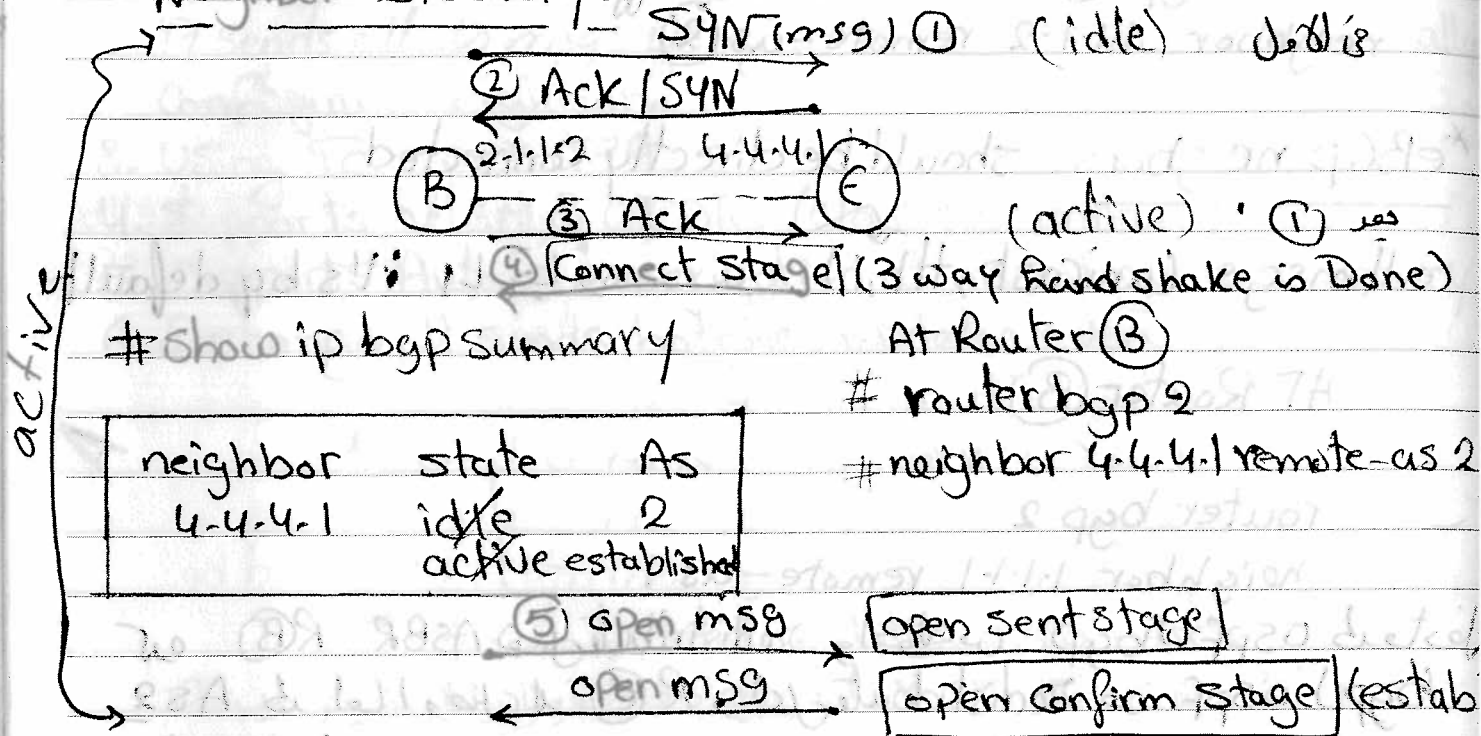 SYN (msg) ① (idle) في الاول
② Ack / SYN
2.1.1.2 4.4.4.1
B E
③ Ack (active) ① بعد
④ Connect stage (3 way hand shake is Done)
active
# show ip bgp summary At Router Ⓑ
# router bgp 2
neighbor state As # neighbor 4.4.4.1 remote-as 2
4.4.4.1 idle 2
active established
⑤ open msg open sent stage
open msg open confirm stage (estab